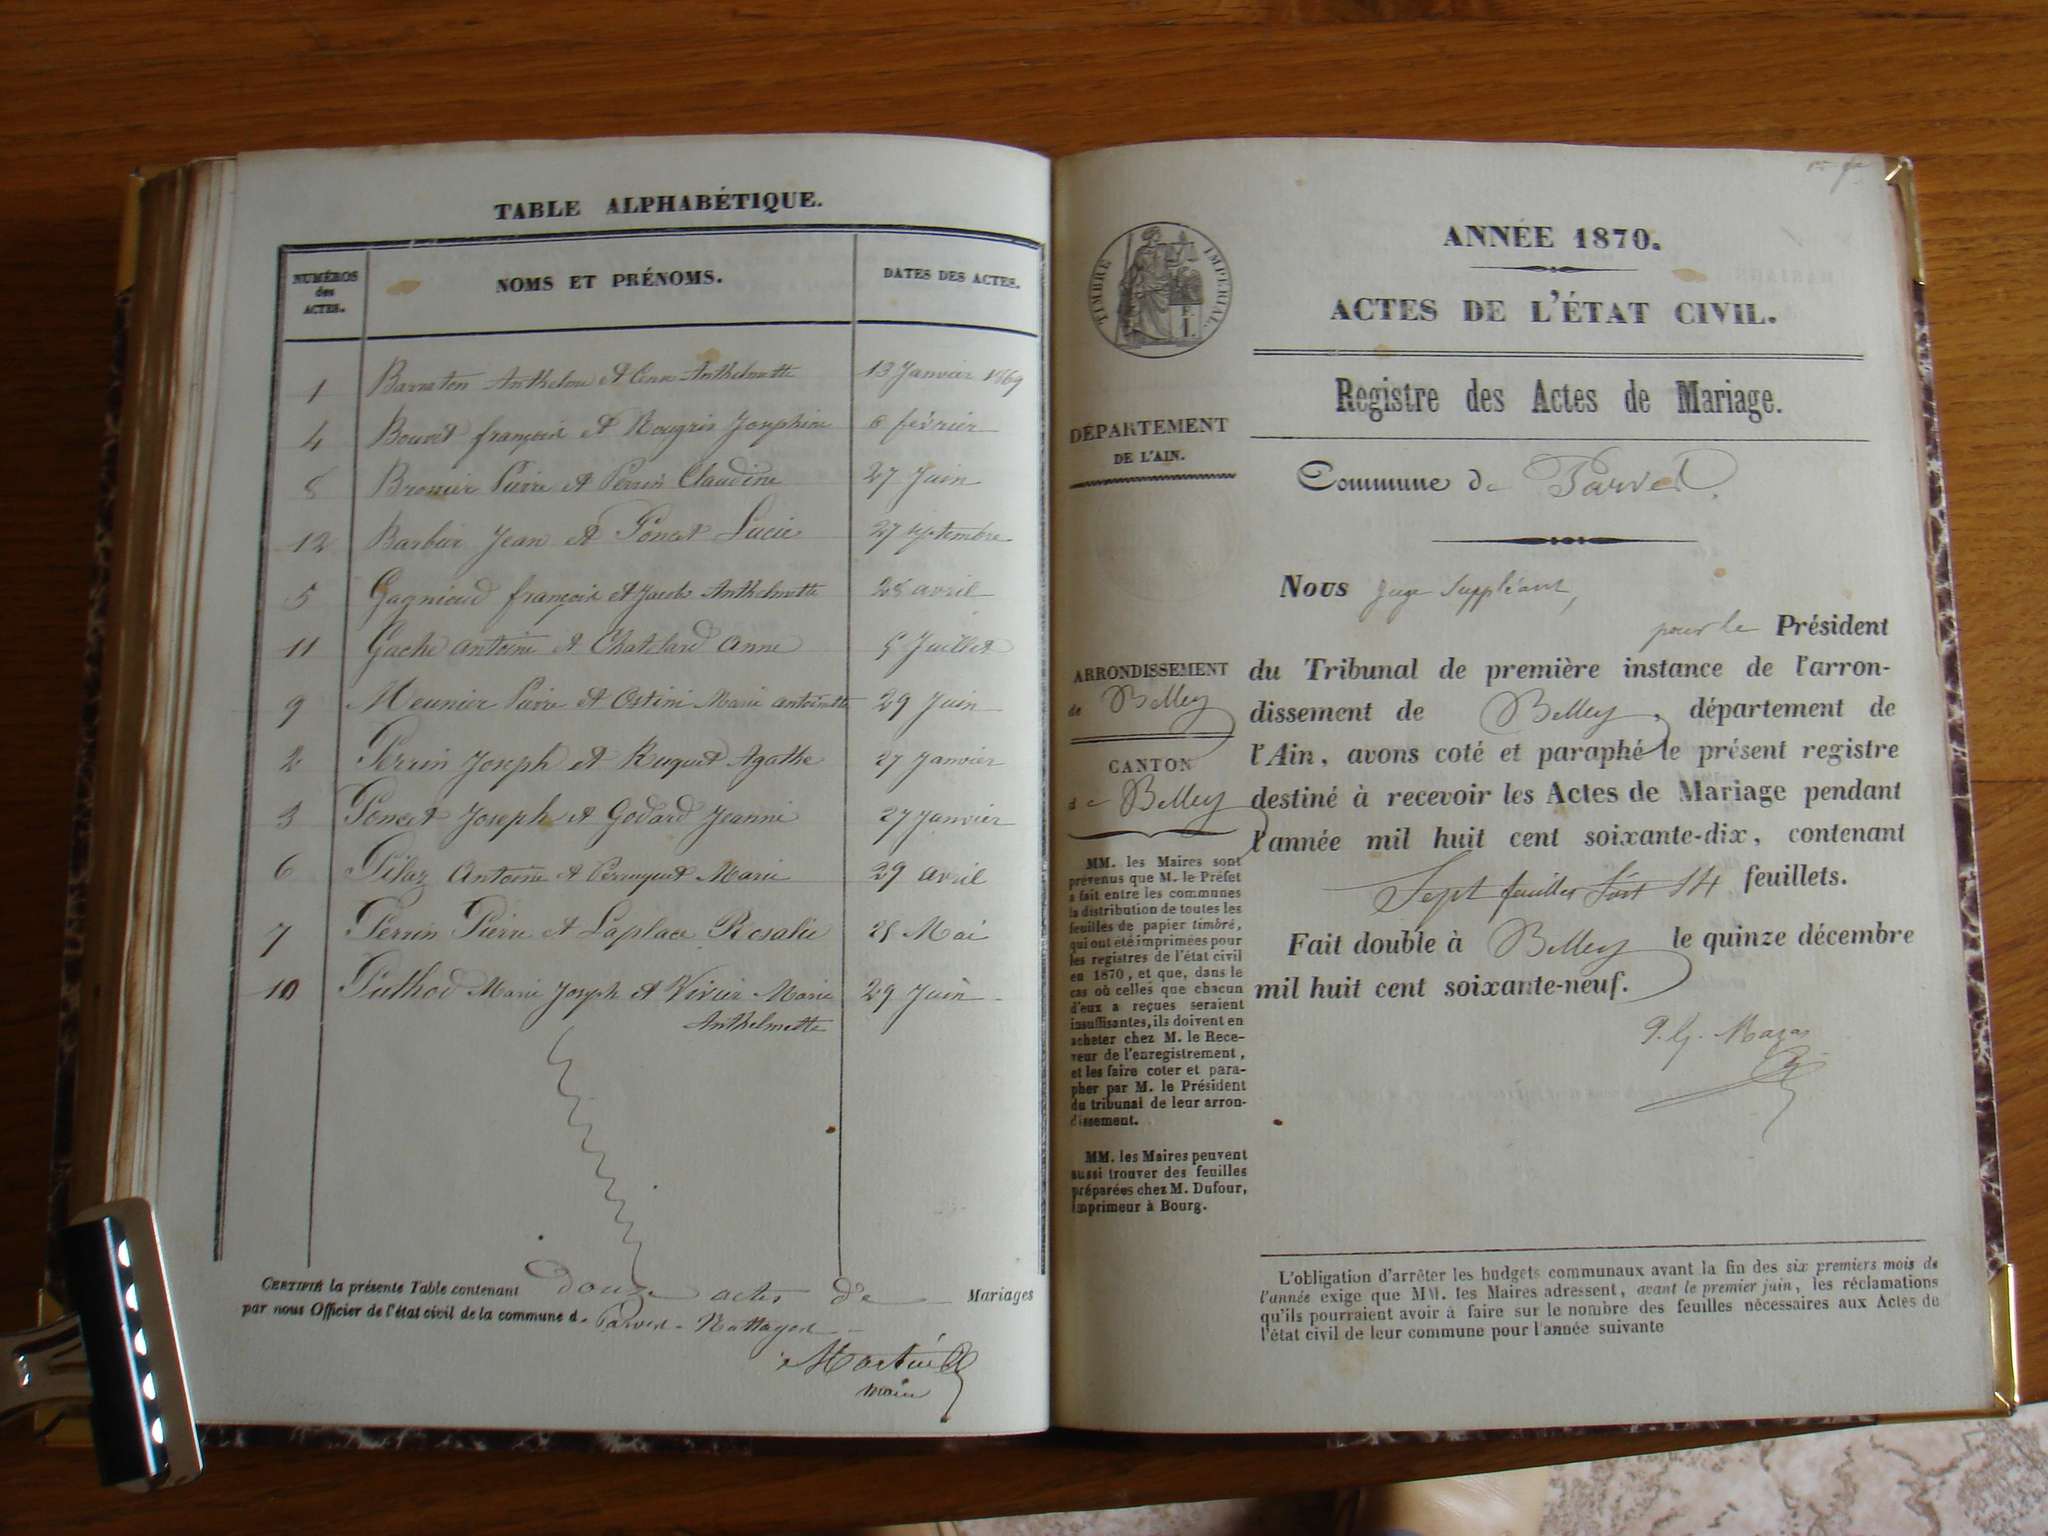 TABLE ALPHABÉTIQUE.
NUMÉROS
des
ACTES.
NOMS ET PRÉNOMS.
DATES DES ACTES.
1 Barraton Anthelme et Anthelmette 13 Janvier 1869
4 Bouvet françois et Rougris Josephine 6 février
8 Brossier Pierre et Perrin Claudine 27 Juin
12 Barbier Jean et Poncet Lucie 27 septembre
5 Gagnioud françois et Jacob Anthelmette 28 avril
11 Gache antoine et Chatelard anne 5 Juillet
9 Meunier Pierre et Ostini Marie antoinette 29 Juin
2 Perrin Joseph et Ruquet Agathe 27 Janvier
3 Poncet Joseph et Godard Jeanne 27 Janvier
6 Pilaz Antoine et Perruquet Marie 29 avril
7 Perrin Pierre et Laplace Rosalie 25 Mai
10 Pulhod Marie Joseph et Vivier Marie 29 Juin
Anthelmette
CERTIFIÉ la présente Table contenant douze actes de Mariages
par nous Officier de l'état civil de la commune de Parves-Nattages
maire
ANNÉE 1870.
ACTES DE L'ÉTAT CIVIL.
TIMBRE IMPERIAL.
Registre des Actes de Mariage.
DÉPARTEMENT
DE L'AIN.
Commune de Parves.
Nous Juge Suppléant,
pour le Président
du Tribunal de première instance de l'arron-
dissement de Belley, département de
l'Ain, avons coté et paraphé le présent registre
destiné à recevoir les Actes de Mariage pendant
l'année mil huit cent soixante-dix, contenant
Sept feuilles 14 feuillets.
Fait double à Belley le quinze décembre
mil huit cent soixante-neuf.
ARRONDISSEMENT
de Belley
CANTON
de Belley
MM. les Maires sont
prévenus que M. le Préfet
a fait entre les communes
la distribution de toutes les
feuilles de papier timbré,
qui ont été imprimées pour
les registres de l'état civil
en 1870, et que, dans le
cas où celles que chacun
d'eux a reçues seraient
insuffisantes, ils doivent en
acheter chez M. le Rece-
veur de l'enregistrement,
et les faire coter et para-
pher par M. le Président
du tribunal de leur arron-
dissement.
MM. les Maires peuvent
aussi trouver des feuilles
préparées chez M. Dufour,
imprimeur à Bourg.
L'obligation d'arrêter les budgets communaux avant la fin des six premiers mois de
l'année exige que MM. les Maires adressent, avant le premier juin, les réclamations
qu'ils pourraient avoir à faire sur le nombre des feuilles nécessaires aux Actes de
l'état civil de leur commune pour l'année suivante